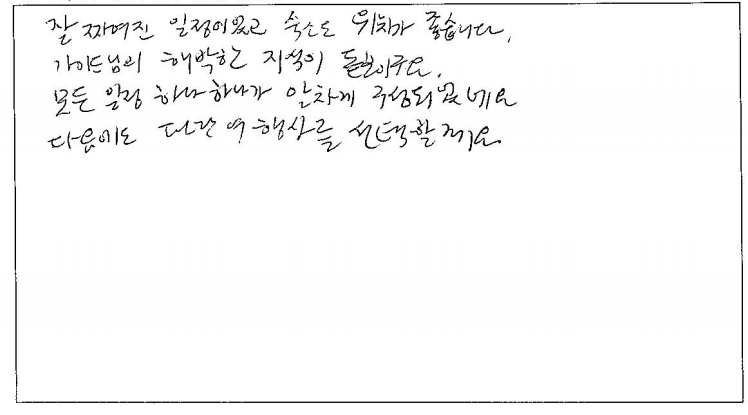 잘 짜여진 일정이었고 숙소도 위치가 좋습니다.
가이드님의 해박한 지식이 돋보이구요.
모든 일정 하나하나가 알차게 구성되었네요
다음에도 여행사를 선택할께요.